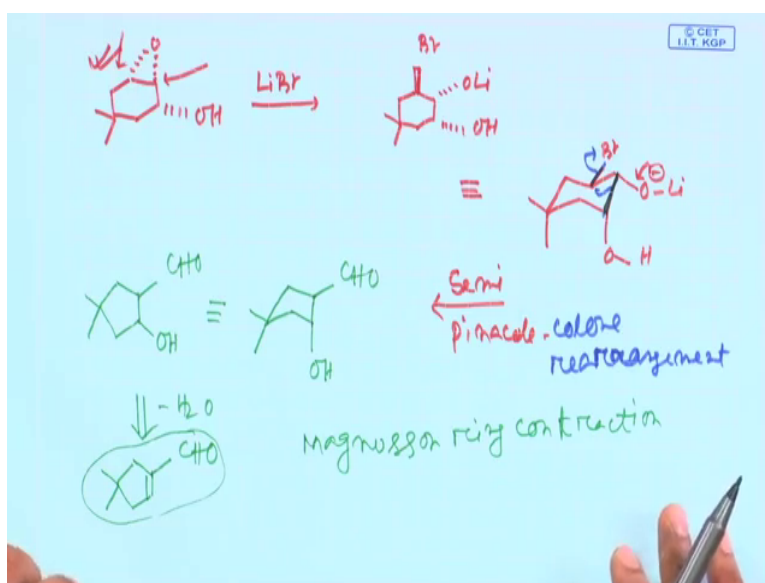 © CET
I.I.T. KGP
O
OH
LiBr
Br
OLi
OH
≡
Br
⊖
O-Li
O H
Semi
pinacole-colone
rearrangement
CHO
OH
≡
CHO
OH
-H2O
CHO
Magnusson ring contraction